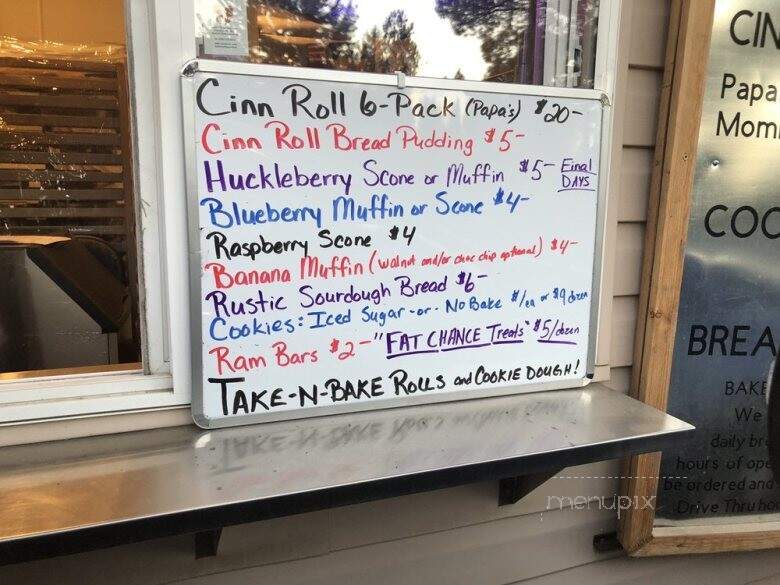 Cinn Roll 6-Pack (Papa's) $20-
Cinn Roll Bread Pudding $5-
Huckleberry Scone or Muffin $5- Final DAYS
Blueberry Muffin or Scone $4-
Raspberry Scone $4
Banana Muffin (walnut and/or choc chip optional) $4-
Rustic Sourdough Bread $6-
Cookies: Iced Sugar -or- No Bake $1/ea or $9 dozen
Ram Bars $2- "FAT CHANCE Treats" $5/dozen
TAKE-N-BAKE ROLLS and COOKIE DOUGH!
CIN
Papa
Mom
COO
BREA
BAKE
We
daily br
hours of ope
be ordered and
Drive Thru ho
menupix